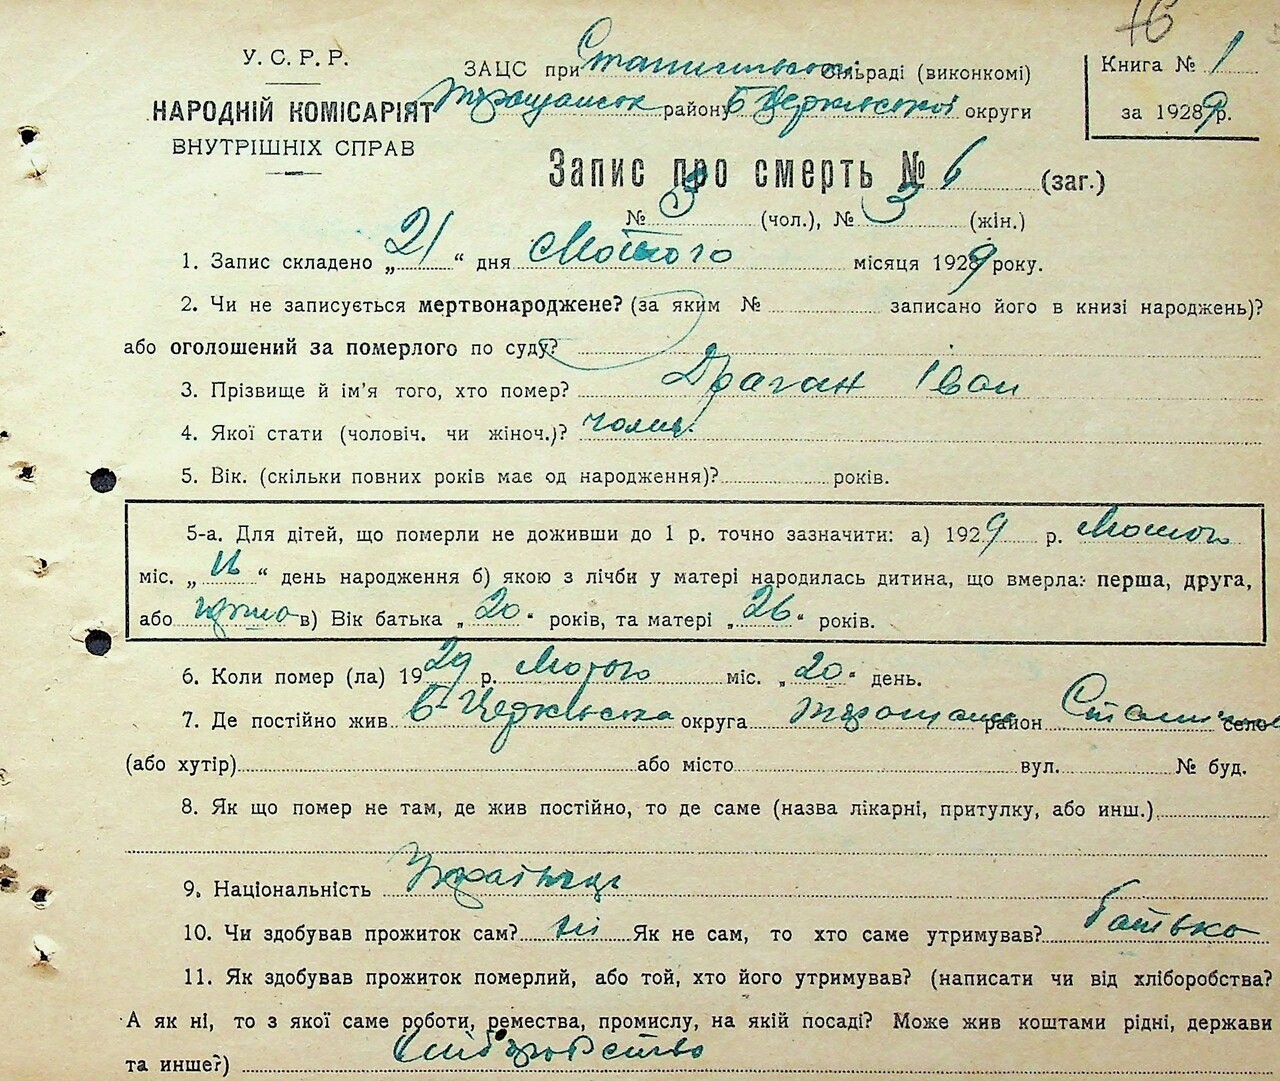 76
У. С. Р. Р.
НАРОДНІЙ КОМІСАРІЯТ
ВНУТРІШНІХ СПРАВ
ЗАЦС при Станишівській сільраді (виконкомі)
Таращанськ району Б Церківської округи
Книга № 1
за 1929 р.
Запис про смерть № 6 (заг.)
№ 3 (чол.), № 3 (жін.)
1. Запис складено „21“ дня Лютого місяця 1929 року.
2. Чи не записується мертвонароджене? (за яким № записано його в книзі народжень)?
або оголошений за померлого по суду?
3. Прізвище й ім'я того, хто помер? Драган Іван
4. Якої стати (чоловіч. чи жіноч.)? чолич.
5. Вік. (скільки повних років має од народження)? років.
5-а. Для дітей, що померли не доживши до 1 р. точно зазначити: а) 1929 р. Лютого
міс. „16“ день народження б) якою з лічби у матері народилась дитина, що вмерла: перша, друга,
або в) Вік батька „20“ років, та матері „26“ років.
6. Коли помер (ла) 1929 р. Лютого міс. „20“ день.
7. Де постійно жив Б-Церківська округа Таращанськ район село
(або хутір) або місто вул. № буд.
8. Як що помер не там, де жив постійно, то де саме (назва лікарні, притулку, або инш.)
9. Національність Українец
10. Чи здобував прожиток сам? ні Як не сам, то хто саме утримував? батько
11. Як здобував прожиток померлий, або той, хто його утримував? (написати чи від хліборобства?
А як ні, то з якої саме роботи, ремества, промислу, на якій посаді? Може жив коштами рідні, держави
та инше?) Хліборобство